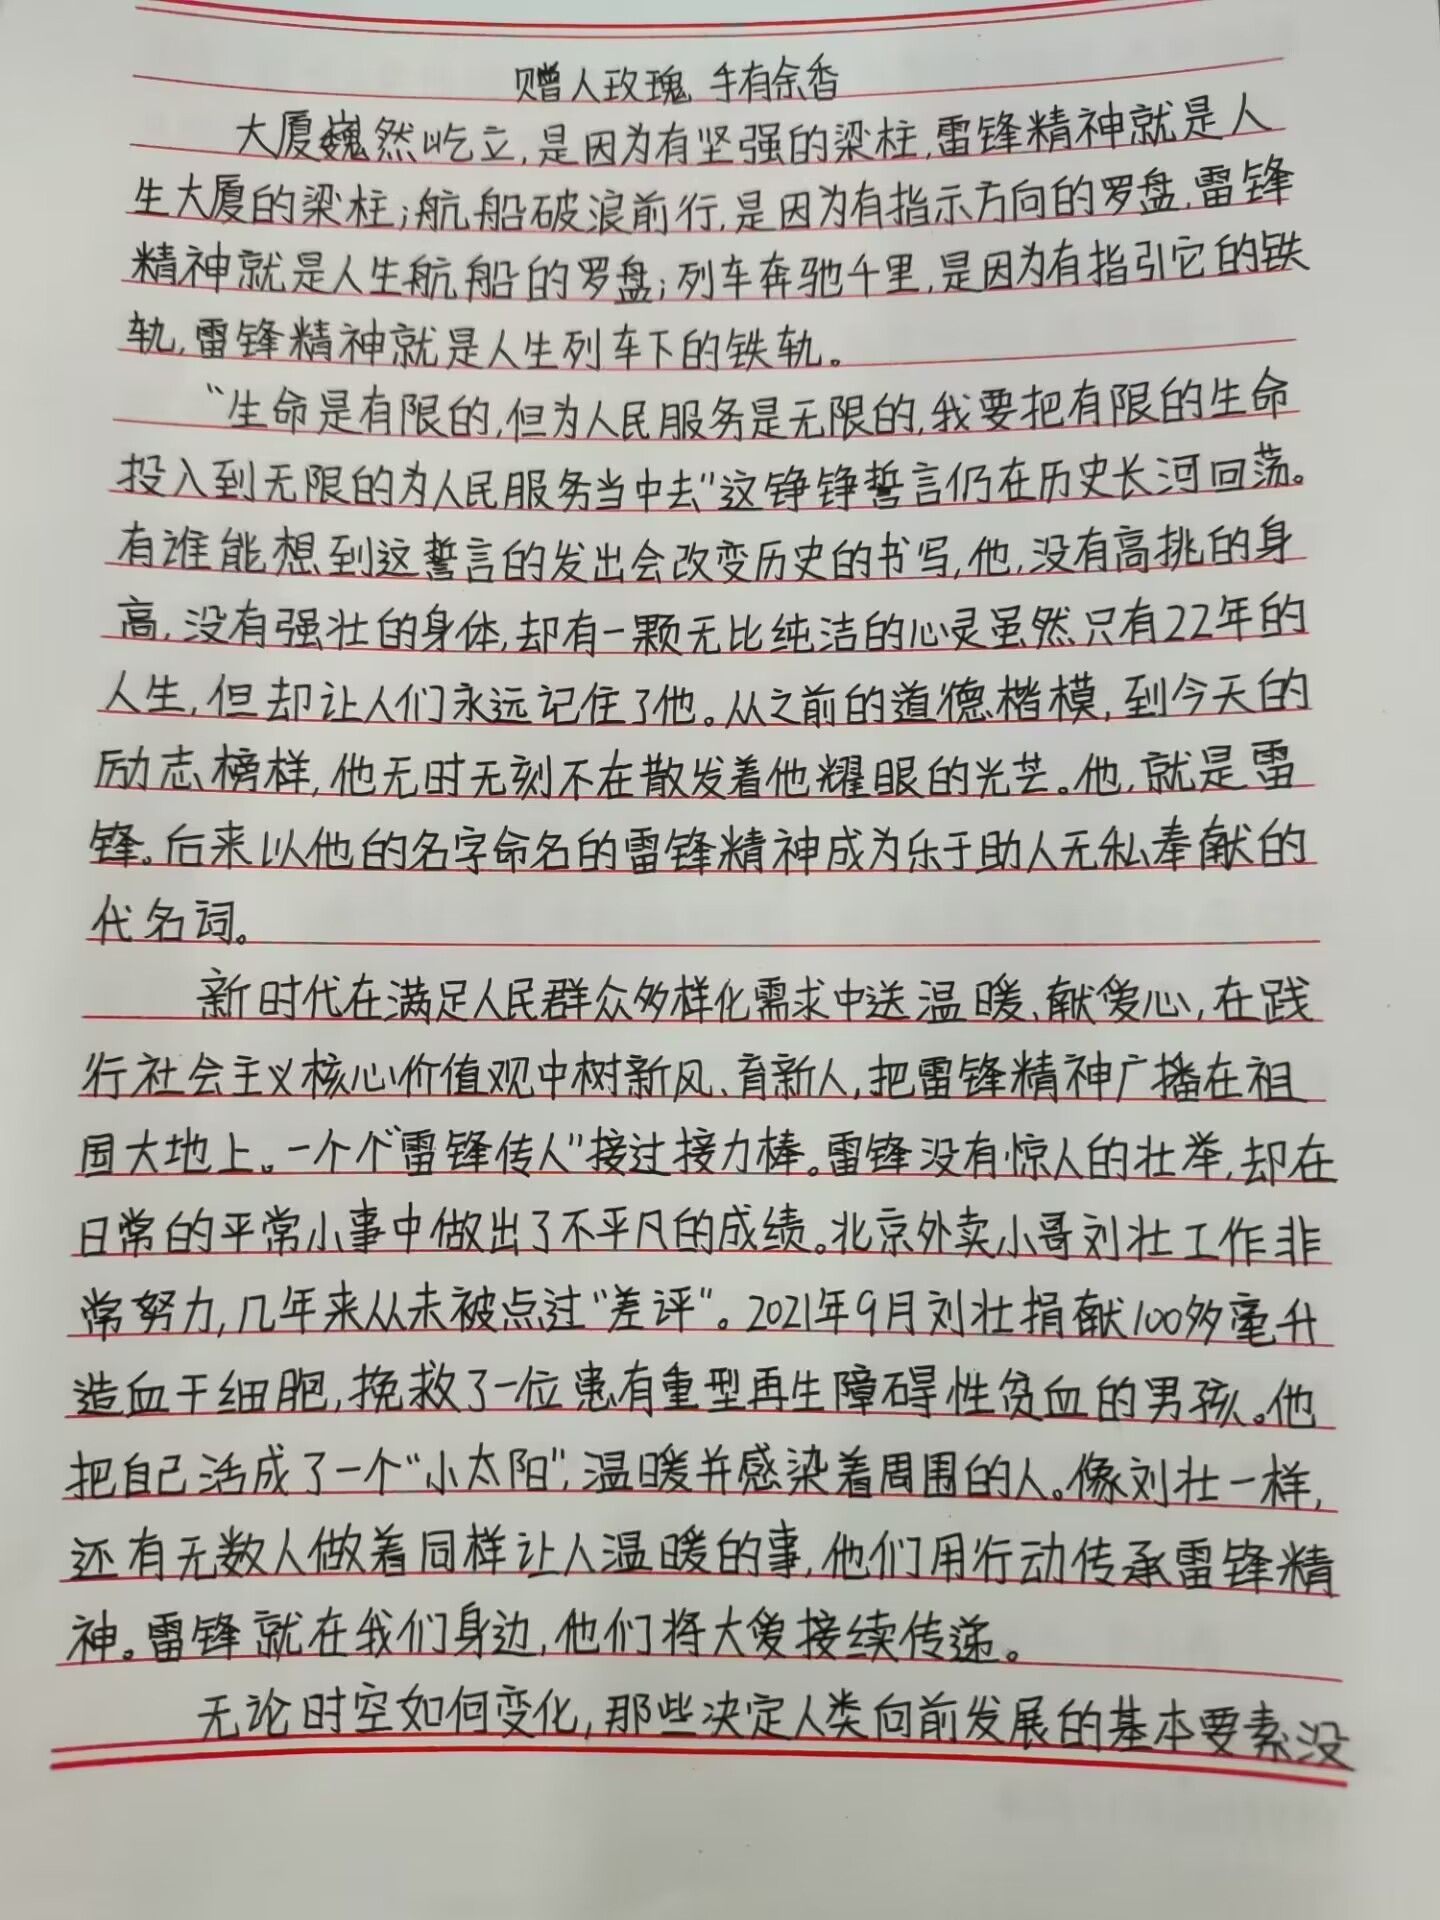 赠人玫瑰 手有余香
大厦巍然屹立,是因为有坚强的梁柱,雷锋精神就是人
生大厦的梁柱;航船破浪前行,是因为有指示方向的罗盘,雷锋
精神就是人生航船的罗盘;列车奔驰千里,是因为有指引它的铁
轨,雷锋精神就是人生列车下的铁轨。
“生命是有限的,但为人民服务是无限的,我要把有限的生命
投入到无限的为人民服务当中去”这铮铮誓言仍在历史长河回荡。
有谁能想到这誓言的发出会改变历史的书写,他,没有高挑的身
高,没有强壮的身体,却有一颗无比纯洁的心灵虽然只有22年的
人生,但却让人们永远记住了他。从之前的道德楷模,到今天的
励志榜样,他无时无刻不在散发着他耀眼的光芒。他,就是雷
锋。后来以他的名字命名的雷锋精神成为乐于助人无私奉献的
代名词。
新时代在满足人民群众多样化需求中送温暖、献爱心,在践
行社会主义核心价值观中树新风、育新人,把雷锋精神广播在祖
国大地上。一个个“雷锋传人”接过接力棒。雷锋没有惊人的壮举,却在
日常的平常小事中做出了不平凡的成绩。北京外卖小哥刘壮工作非
常努力,几年来从未被点过“差评”。2021年9月刘壮捐献100多毫升
造血干细胞,挽救了一位患有重型再生障碍性贫血的男孩。他
把自己活成了一个“小太阳”,温暖并感染着周围的人。像刘壮一样,
还有无数人做着同样让人温暖的事,他们用行动传承雷锋精
神。雷锋就在我们身边,他们将大爱接续传递。
无论时空如何变化,那些决定人类向前发展的基本要素没